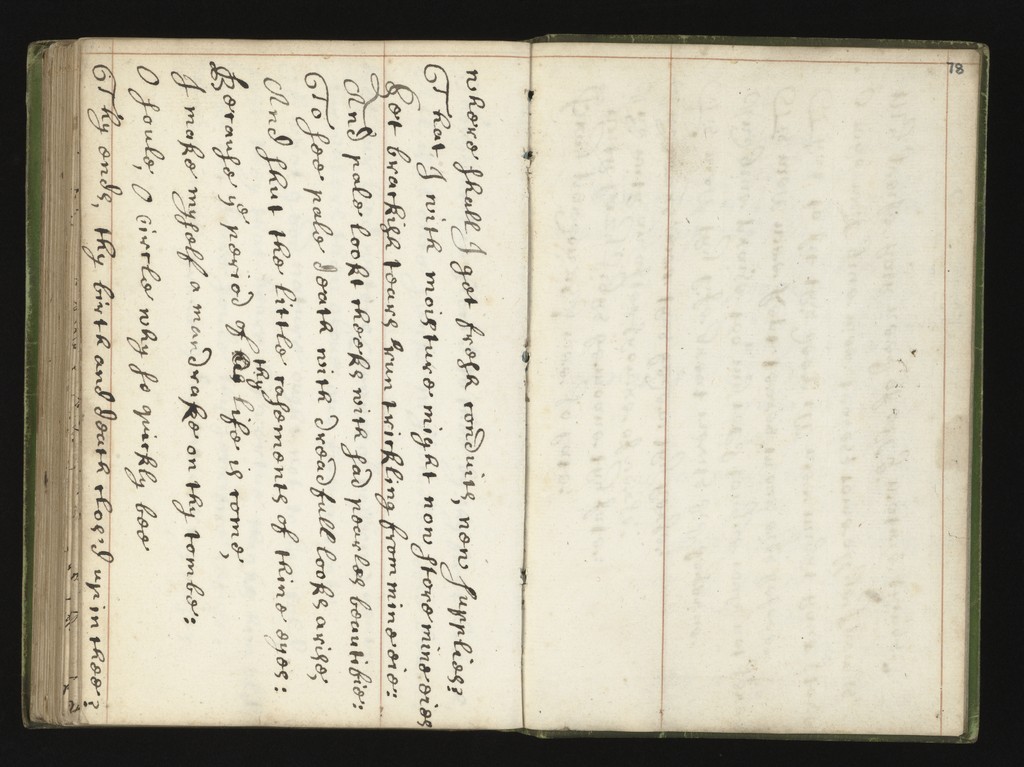 where shall I get fresh conduits, new supplies?
That I with moisture might now store mine eies
Let brackish tears run trickling from mine eie:
And pale lookt cheeks with sad pearles beautifie:
To see pale death with dreadfull looks arise,
And shut the little casements of thine eyes:
Because ye period of thy life is come,
I make myself a mandrake on thy tombe:
O soule, O circle why so quickly bee
Thy ends, thy birth and death clos'd up in thee?
78